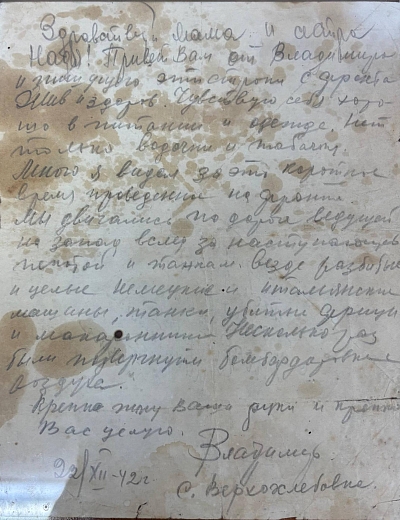 Здравствуй мама и
Надя! Привет Вам от Владимира
и пишущего эти строки с фронта
Жив и здоров. Чувствую себя хоро-
шо в питании и одежде. Нет
только водочки и табаку.
Много я видел за это короткое
время проведенное на фронте
Мы двигались по дороге ведущей
на запад вслед за наступающей
пехотой и танкам. везде разбитые
и целые немецкие и итальянские
машины, танки, убитые фрицы
и макаронники. Несколько раз
были подвергнуты бомбардировке
воздуха.
Крепко жму Ваши руки и крепко
Вас целую.
Владимир
22/XII-42г
с. Верхохлебовка.